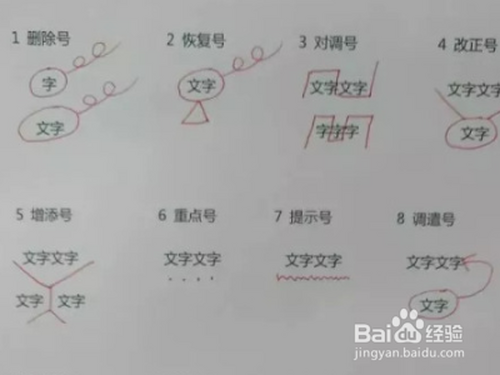 1 删除号 2 恢复号 3 对调号 4 改正号
字 文字 文字文字 文字文字
文字 字字字 文字
5 增添号 6 重点号 7 提示号 8 调遣号
文字文字 文字文字 文字文字 文字文字
文字 文字 文字
Baidu 经验
jingyan.baidu.com